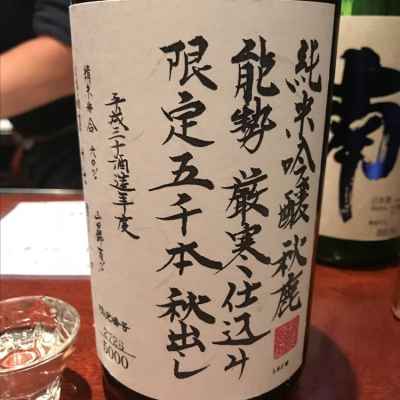 純米吟醸 秋鹿
能勢 厳寒仕込み
限定五千本 秋出し
平成三十酒造年度
精米歩合 六〇% 山田錦
限定番号
2725
5000
南
日本酒